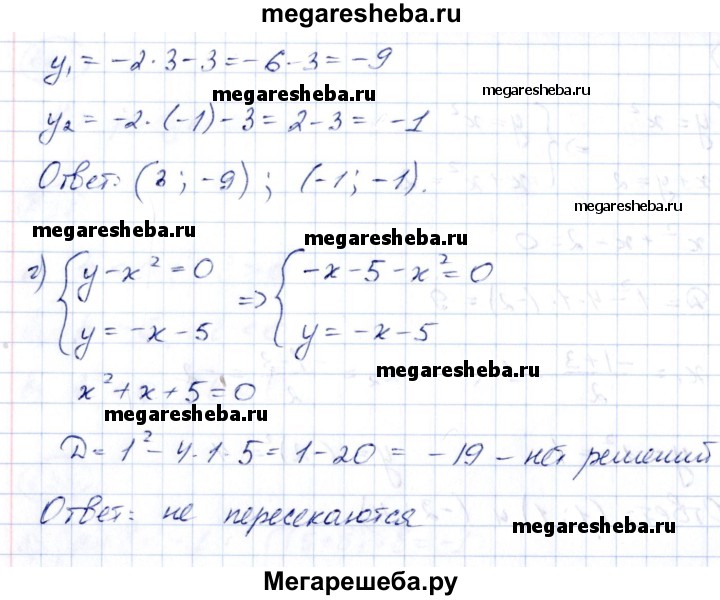 megaresheba.ru
y₁ = -2·3-3 = -6-3 = -9
megaresheba.ru
megaresheba.ru
y₂ = -2·(-1)-3 = 2-3 = -1
Ответ: (3; -9); (-1; -1).
megaresheba.ru
megaresheba.ru
megaresheba.ru
г) { y-x² = 0 => { -x-5-x² = 0
y = -x-5 y = -x-5
megaresheba.ru
x²+x+5=0
megaresheba.ru
Д = 1²-4·1·5 = 1-20 = -19 - нет решений
Ответ: не пересекаются
megaresheba.ru
Мегарешеба.ру